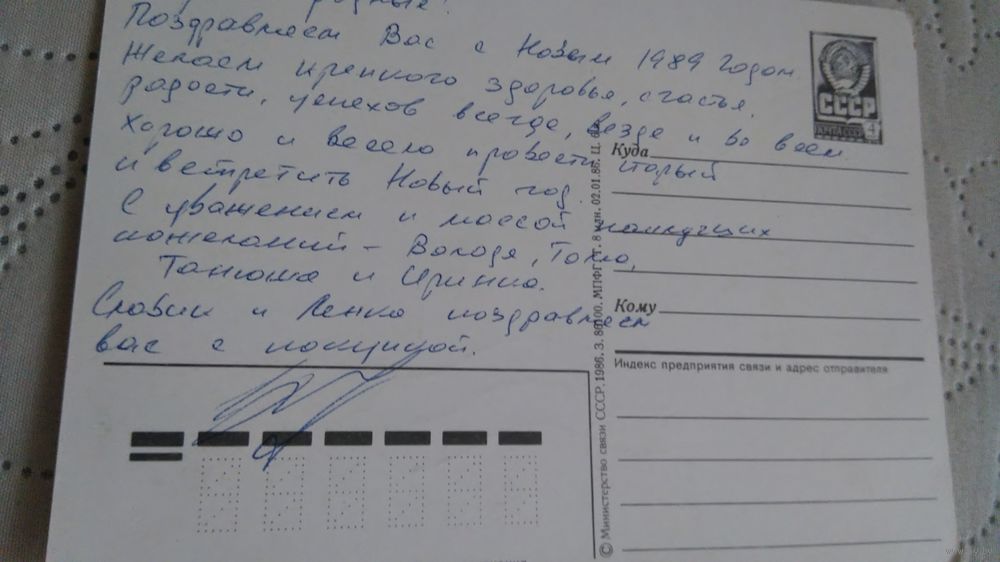 родные!
Поздравляем Вас с Новым 1989 годом
Желаем крепкого здоровья, счастья,
радости, успехов всегда, везде и во всем
Хорошо и весело провести старый
и встретить Новый год.
С уважением и массой наилучших
пожеланий – Володя, Толя,
Танюша и Иринка.
Славик и Ленка поздравляем
вас с покупкой.
СССР
4
Куда
Кому
Индекс предприятия связи и адрес отправителя
© Министерство связи СССР. 1986. З. 86100. МПФГ. Г. 8 млн. 02.01.86. Ц.